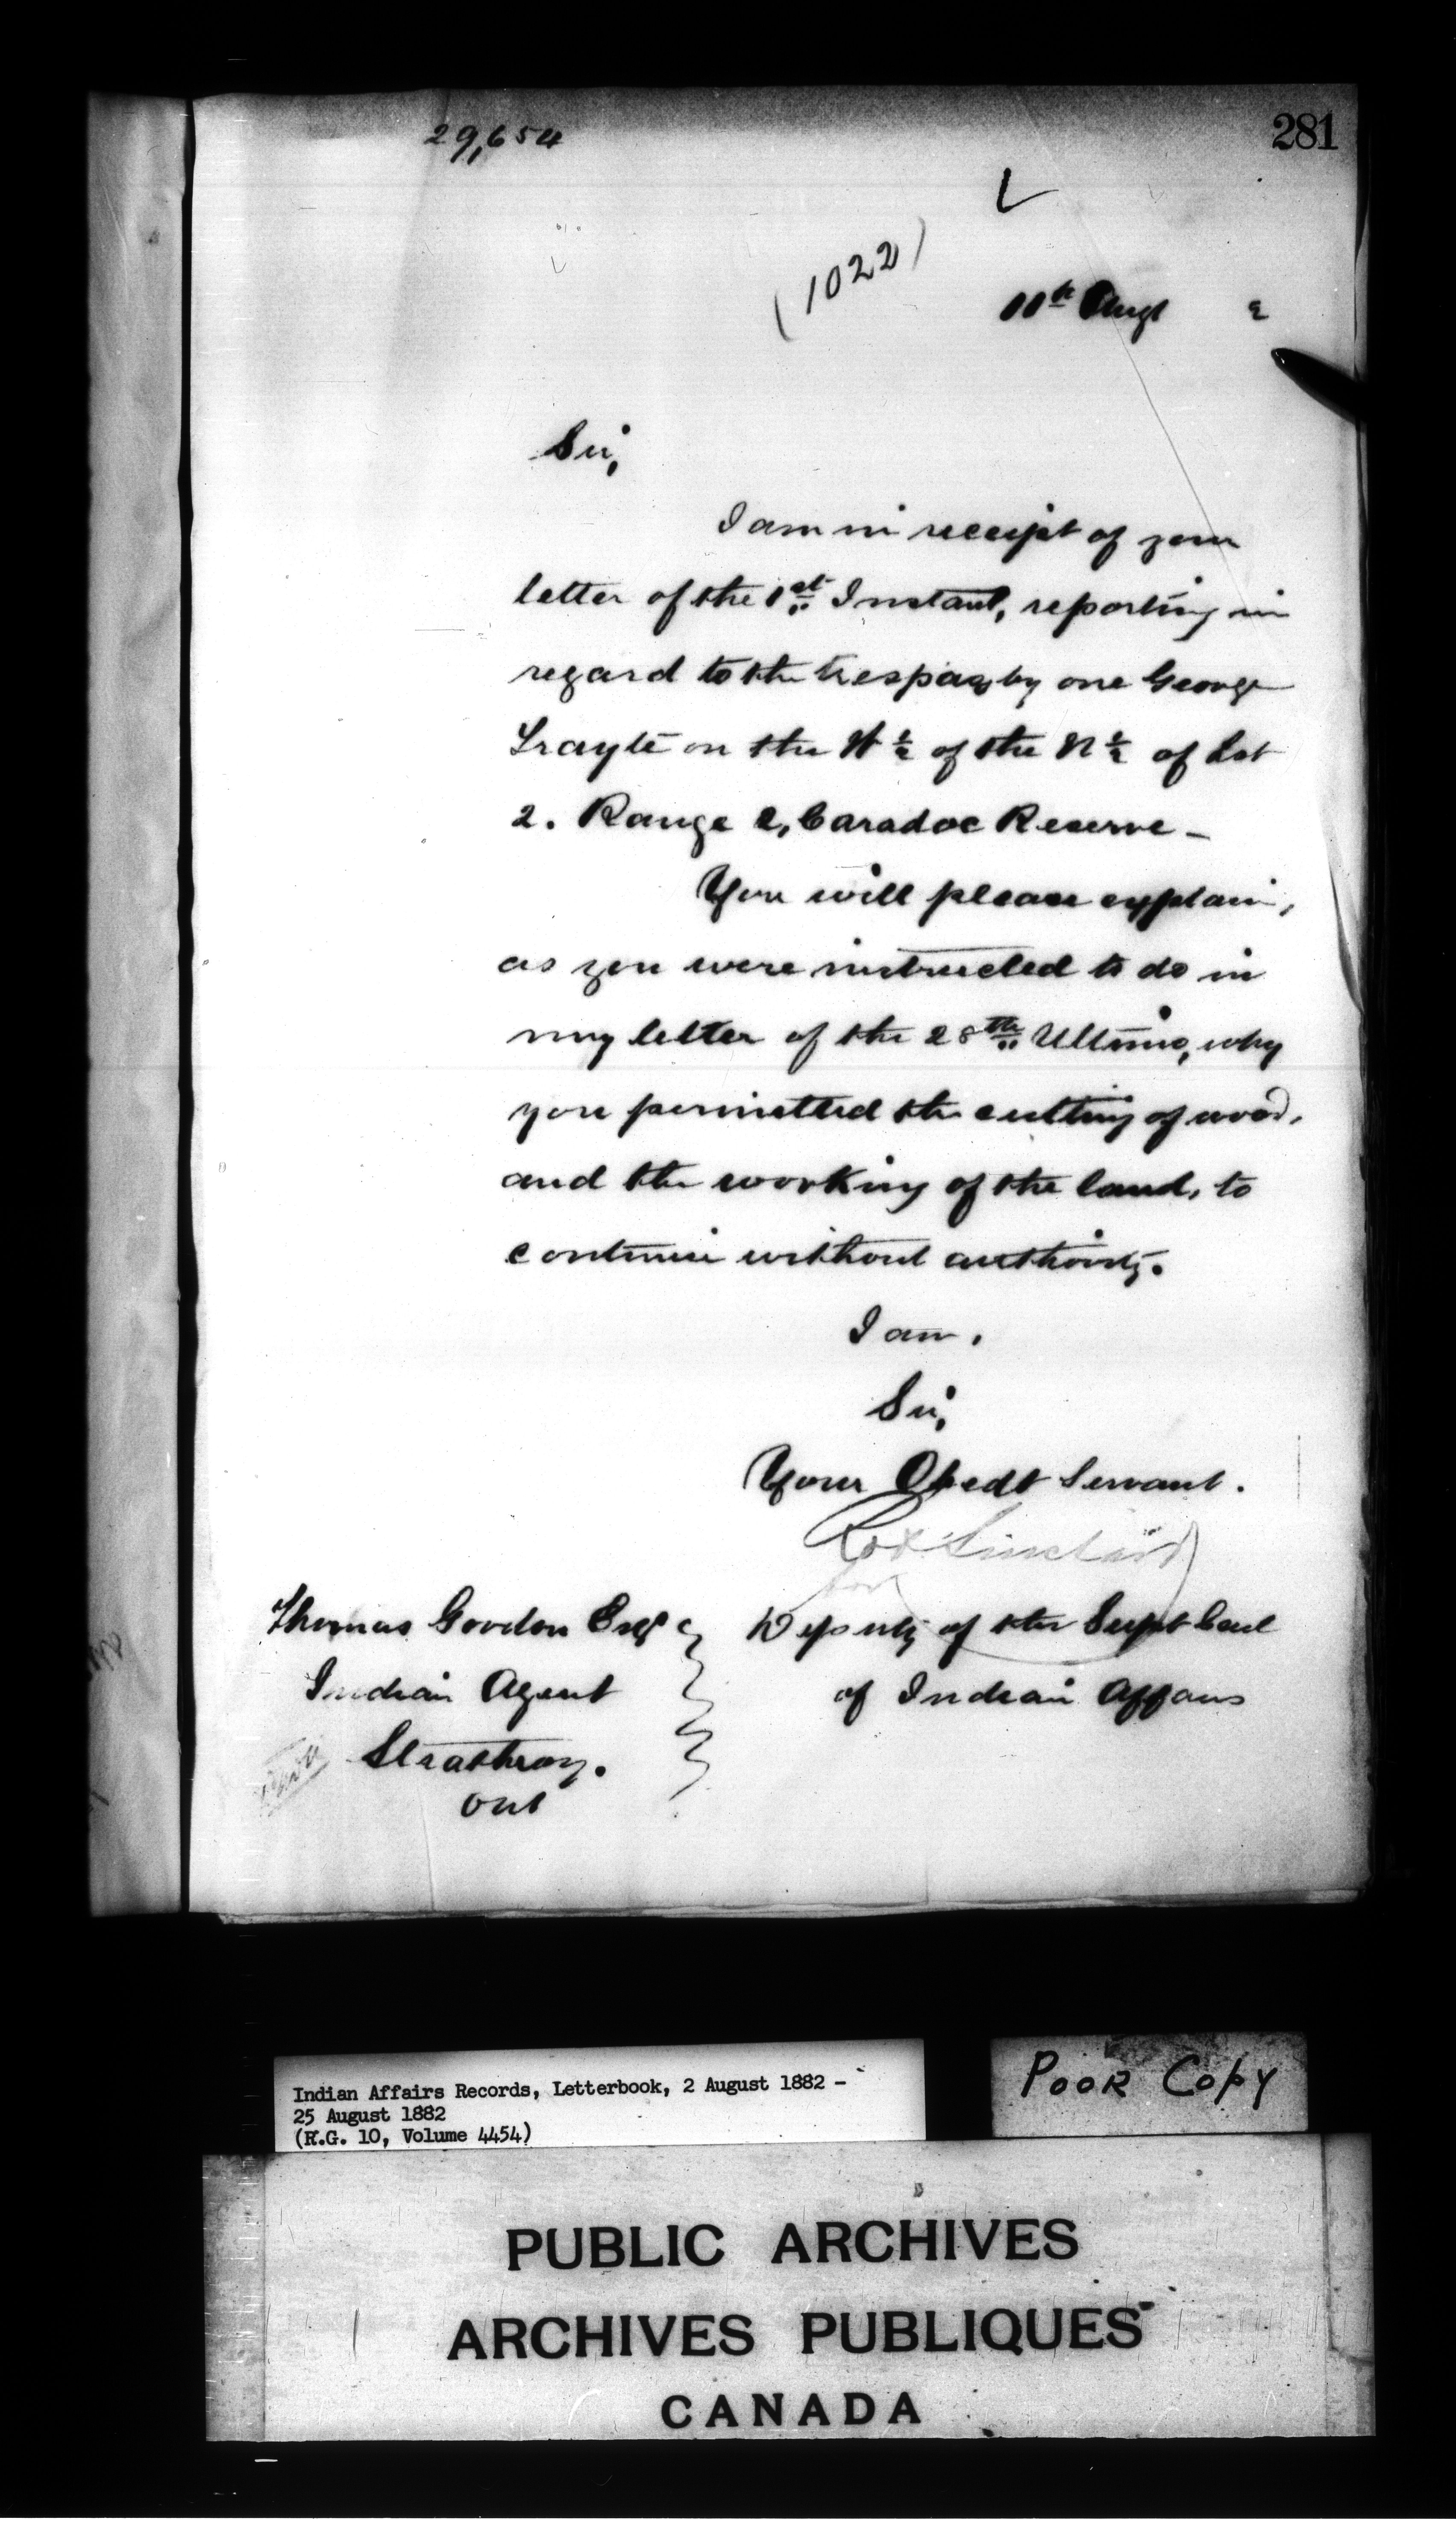 29,654
281
(1022)
11th Augt 2
Sir,
I am in receipt of your
letter of the 1st Instant, reporting in
regard to the trespass by one George
on the W ½ of the N ½ of Lot
2. Range 2, Caradoc Reserve -
You will please explain,
as you were instructed to do in
my letter of the 28th Ultimo, why
you permitted the cutting of wood,
and the working of the land, to
continue without authority.
I am,
Sir,
Your Obedt Servant.
Rob Sinclair
for
Thomas Gordon Esqr
Deputy of the Supt Genl
Indian Agent
of Indian Affairs
Strathroy.
Ont
Indian Affairs Records, Letterbook, 2 August 1882 -
25 August 1882
(R.G. 10, Volume 4454)
POOR COPY
PUBLIC ARCHIVES
ARCHIVES PUBLIQUES
CANADA